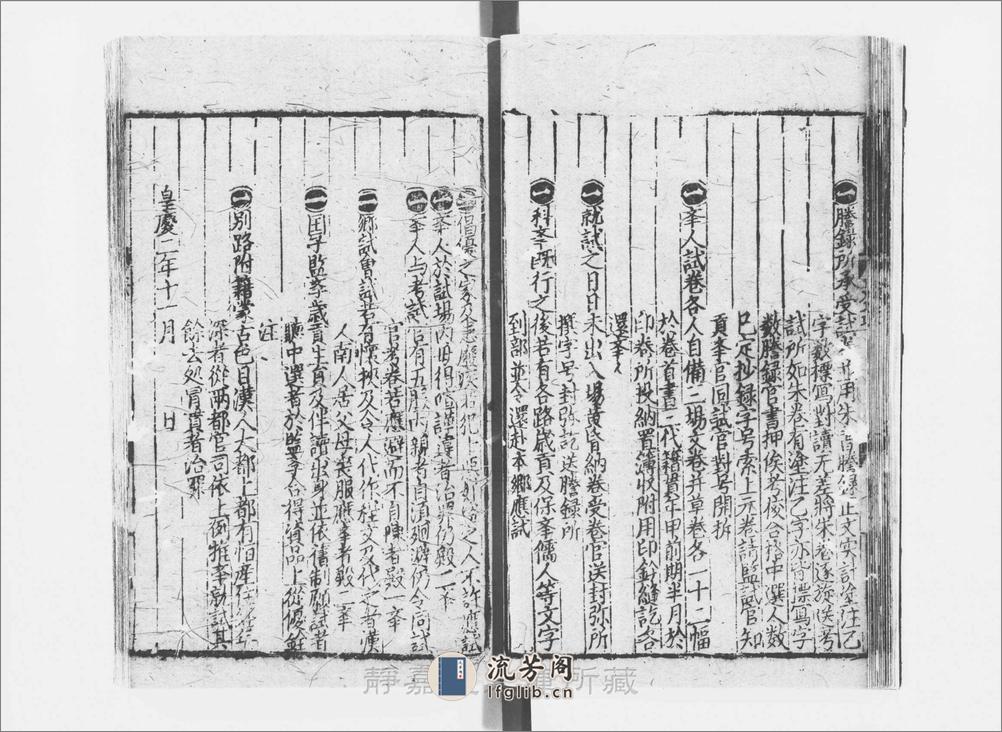 一謄録所承受試卷並用朱書謄録正文实計塗注乙
字數標寫對讀无差將朱卷逐旋送考
試所如朱卷有塗注乙字亦皆標寫字
數謄録官書押俟考校合格中選人數
已定抄録字号索上元卷請監試官知
貢舉官同試官對号開拆
一举人試卷各人自備三場文卷并草卷各一十二幅
於卷首書三代籍貫年甲前期半月於
印卷所投納置簿收附用印鈐縫訖各
還举人
一就試之日日未出入場黄昏納卷受卷官送封弥所
撰字号封弥訖送謄録所
一科举既行之後若有各路歲貢及保举儒人等文字
到部並令還赴本鄉應試
一倡優之家及患廢疾若犯十惡姦盗之人不許應試
一举人於試場内毋得喧譁違者治罪仍殿二举
一举人与考試官有五服内親者自須廻避仍令同試
官考卷若應避而不自陳者殿一举
一鄉試會試若有懷挾及令人代作程文及代之者漢
人南人居父母喪服應举者殿二举
一国子監学歲貢生員及伴讀出身並依舊制願試者
聽中選者於監学合得資品上從優銓
注
一別路附籍蒙古色目漢人大都上都有恒産住經年
深者從兩都官司依上例推举就試其
餘去処冒貫者治罪
皇慶二年十一月 日
静嘉 所藏
流芳阁
lfglib.cn